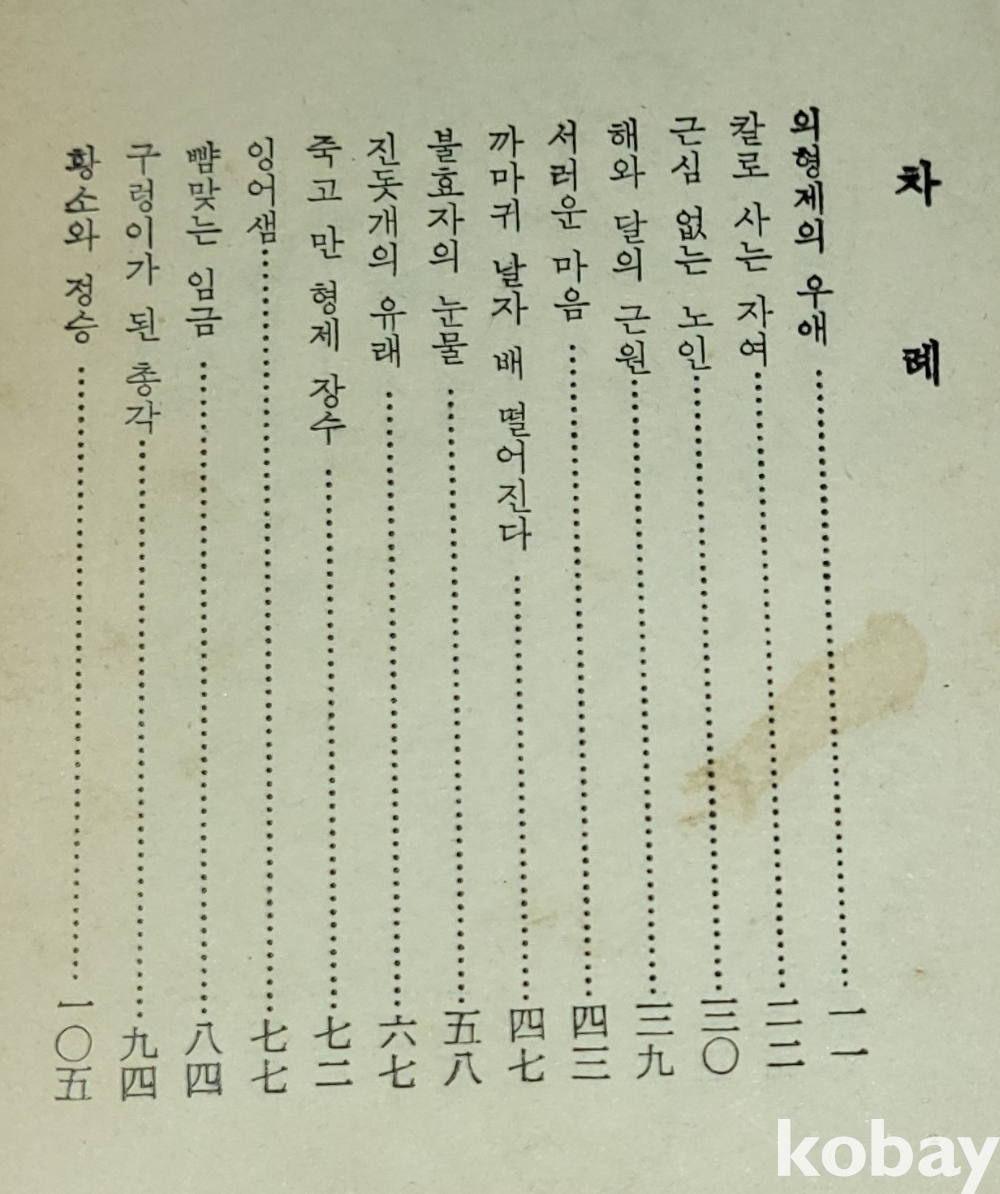 차 례
외형제의 우애……………一一
칼로 사는 자여……………二二
근심 없는 노인……………三〇
해와 달의 근원……………三九
서러운 마음……………四三
까마귀 날자 배 떨어진다……………四七
불효자의 눈물……………五八
진돗개의 유래……………六七
죽고 만 형제 장수……………七二
잉어샘……………七七
뺨맞는 임금……………八四
구렁이가 된 총각……………九四
황소와 정승……………一〇五
kobay